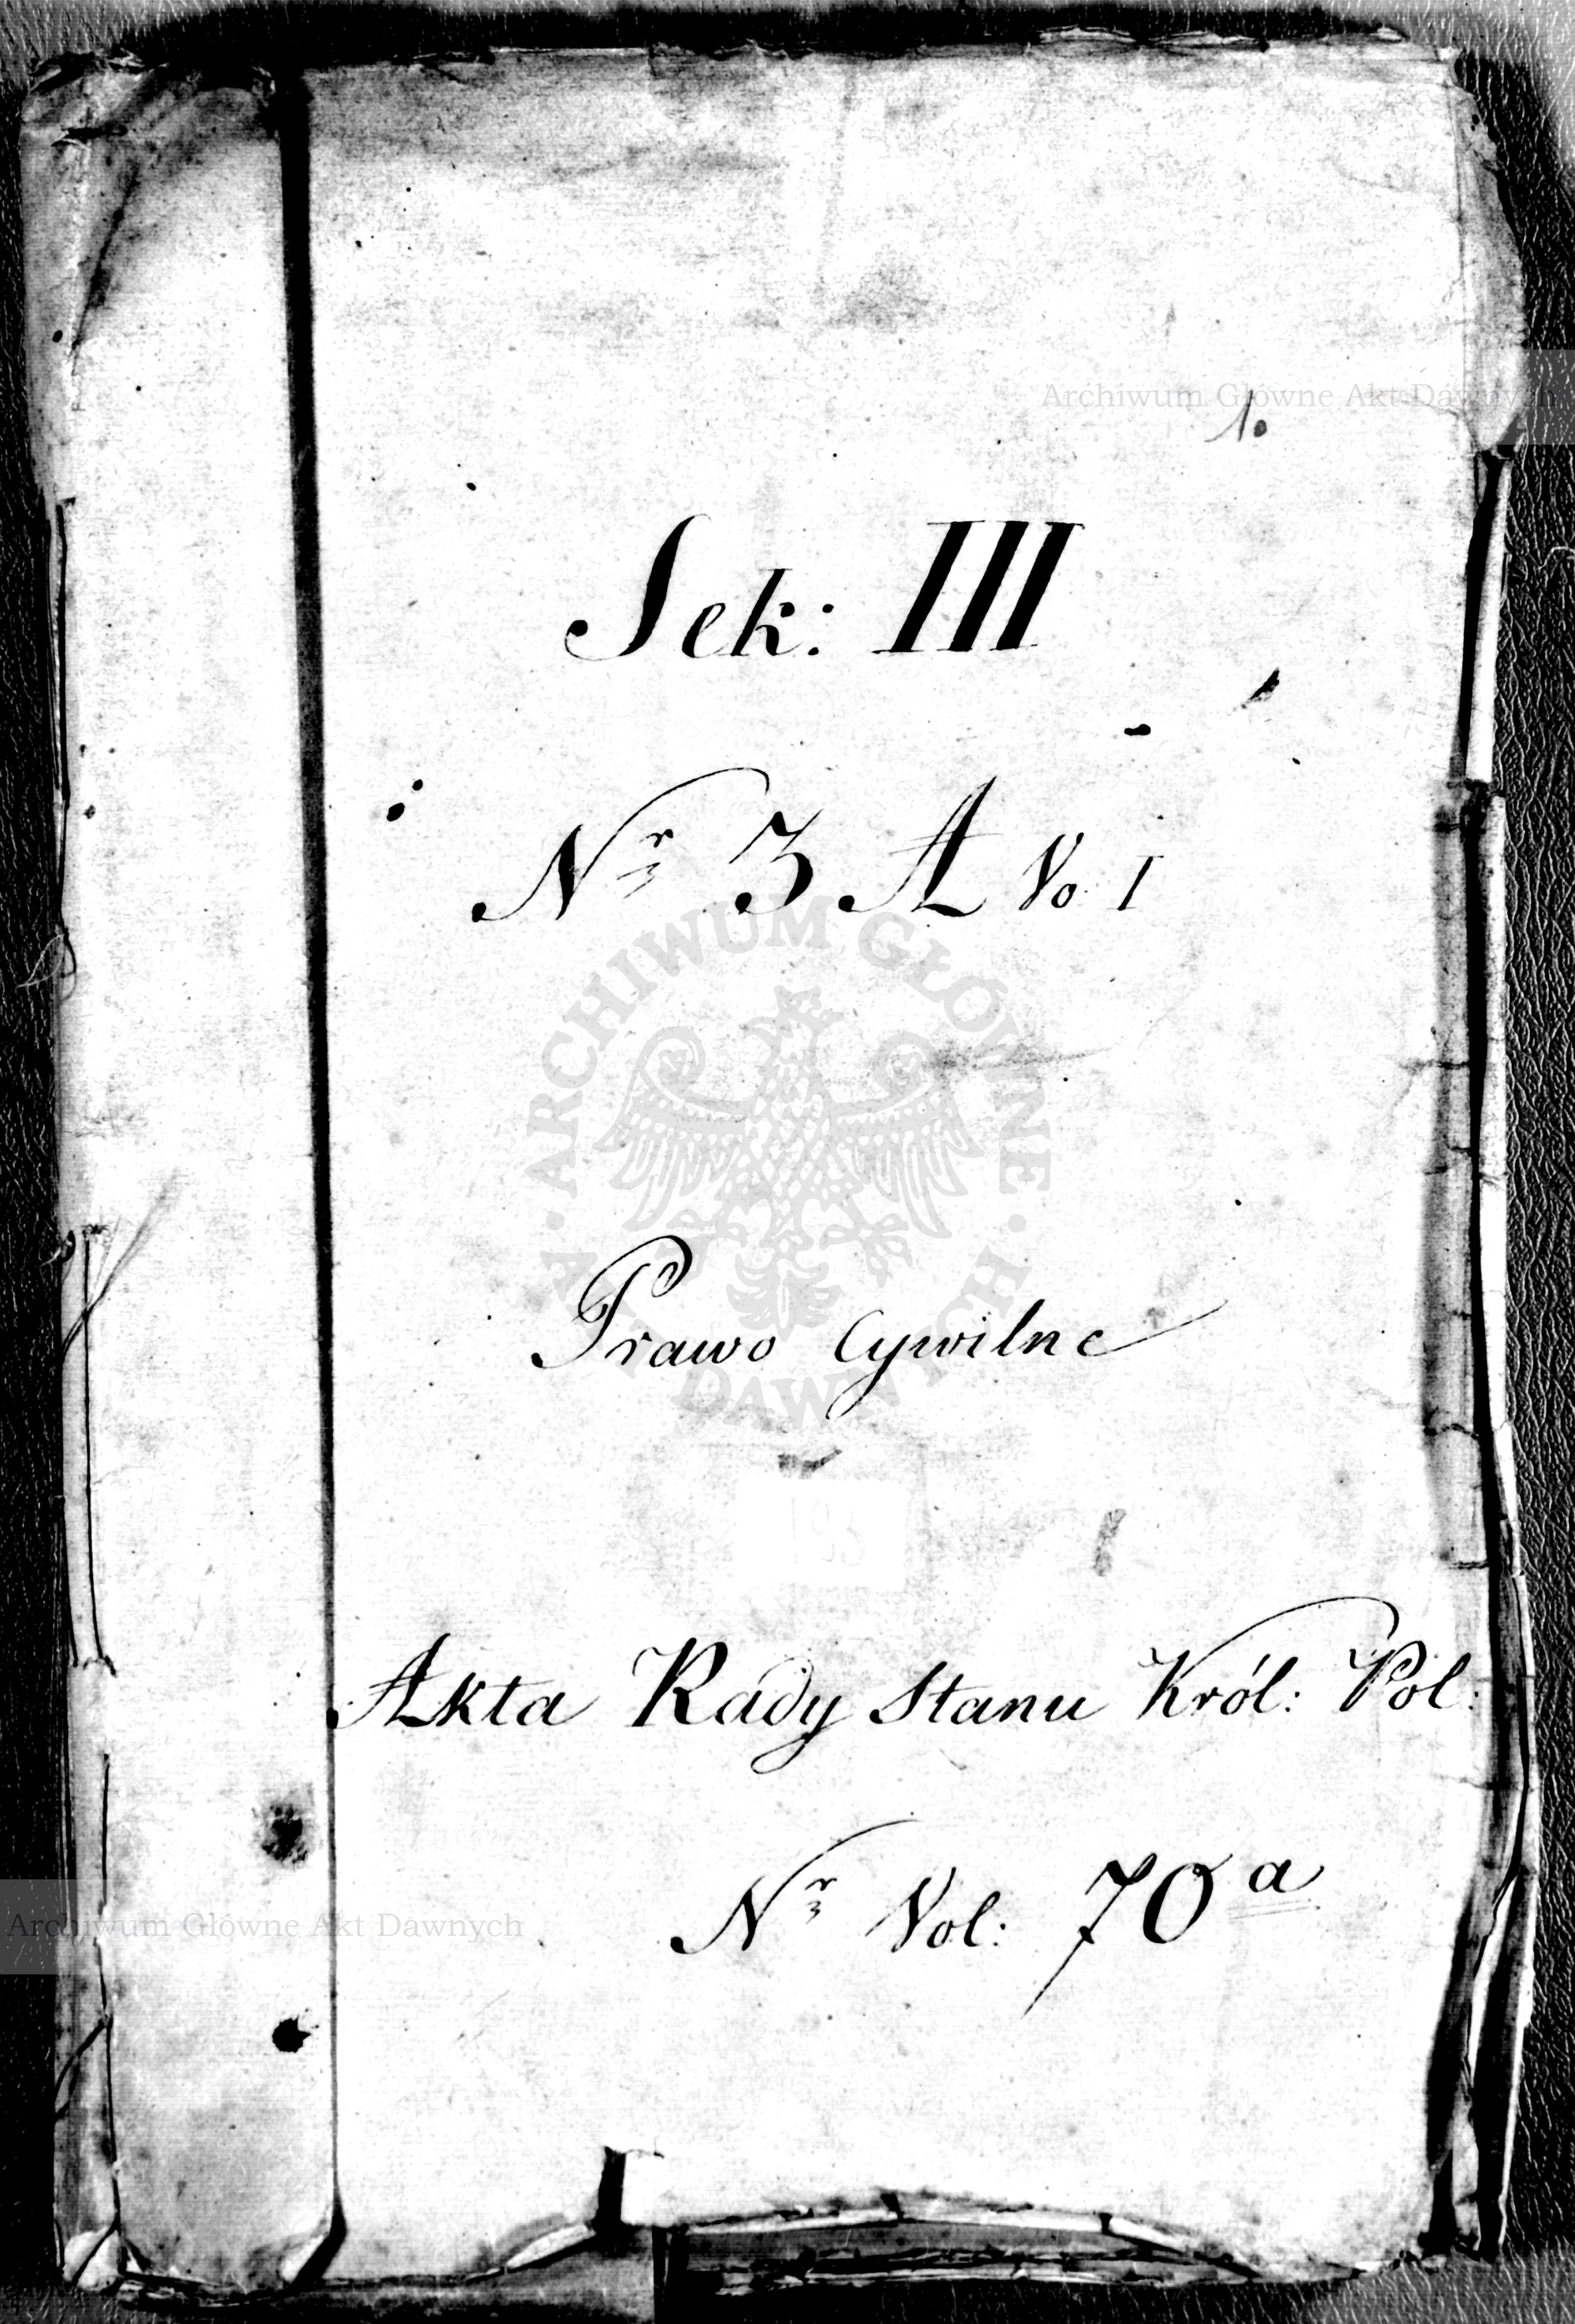 Archiwum Główne Akt Dawnych
1.
Sek: III
Nr 3 A Vo I
ARCHIWUM GŁÓWNE AKT DAWNYCH
Prawo Cywilne
Akta Rady Stanu Król: Pol:
Nr Vol: 70 a
Archiwum Główne Akt Dawnych